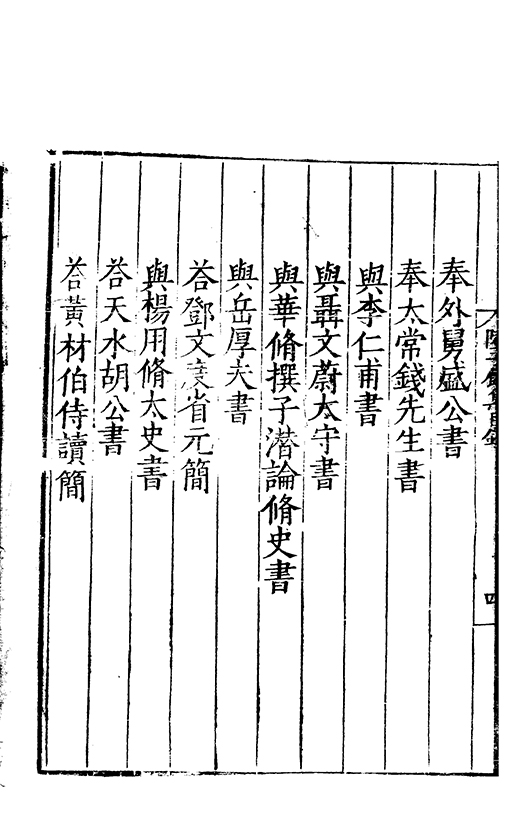 奉外舅盛公書
奉太常錢先生書
與李仁甫書
與聶文蔚太守書
與華脩撰子潜論脩史書
與岳厚夫書
荅鄧文度省元簡
與楊用脩太史書
荅天水胡公書
荅黃材伯侍讀簡
四